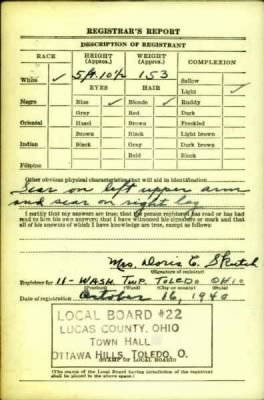 REGISTRAR'S REPORT
DESCRIPTION OF REGISTRANT
RACE HEIGHT (Approx.) WEIGHT (Approx.) COMPLEXION
White ✓ 5ft. 10½ 153 Sallow
EYES HAIR Light ✓
Negro Blue ✓ Blonde ✓ Ruddy
Gray Red Dark
Oriental Hazel Brown Freckled
Brown Black Light brown
Indian Black Gray Dark brown
Bald Black
Filipino
Other obvious physical characteristics that will aid in identification
Scar on left upper arm
and scar on right leg
I certify that my answers are true; that the person registered has read or has had
read to him his own answers; that I have witnessed his signature or mark and that
all of his answers of which I have knowledge are true, except as follows:
Mrs. Doris E.
(Signature of registrar)
Registrar for 11 - WASH. TWP. TOLEDO OHIO
(Precinct) (Ward) (City or county) (State)
Date of registration October 16, 1940
LOCAL BOARD #22
LUCAS COUNTY, OHIO
TOWN HALL
OTTAWA HILLS, TOLEDO, O.
(STAMP OF LOCAL BOARD)
(The stamp of the Local Board having jurisdiction of the registrant
shall be placed in the above space.)